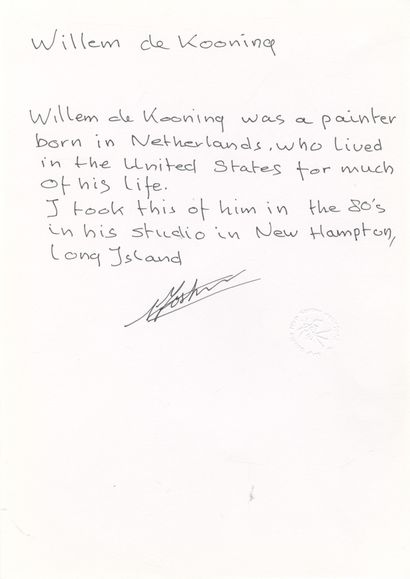 Willem de Kooning
Willem de Kooning was a painter
born in Netherlands, who lived
in the United States for much
of his life.
I took this of him in the 80's
in his studio in New Hampton,
Long Island